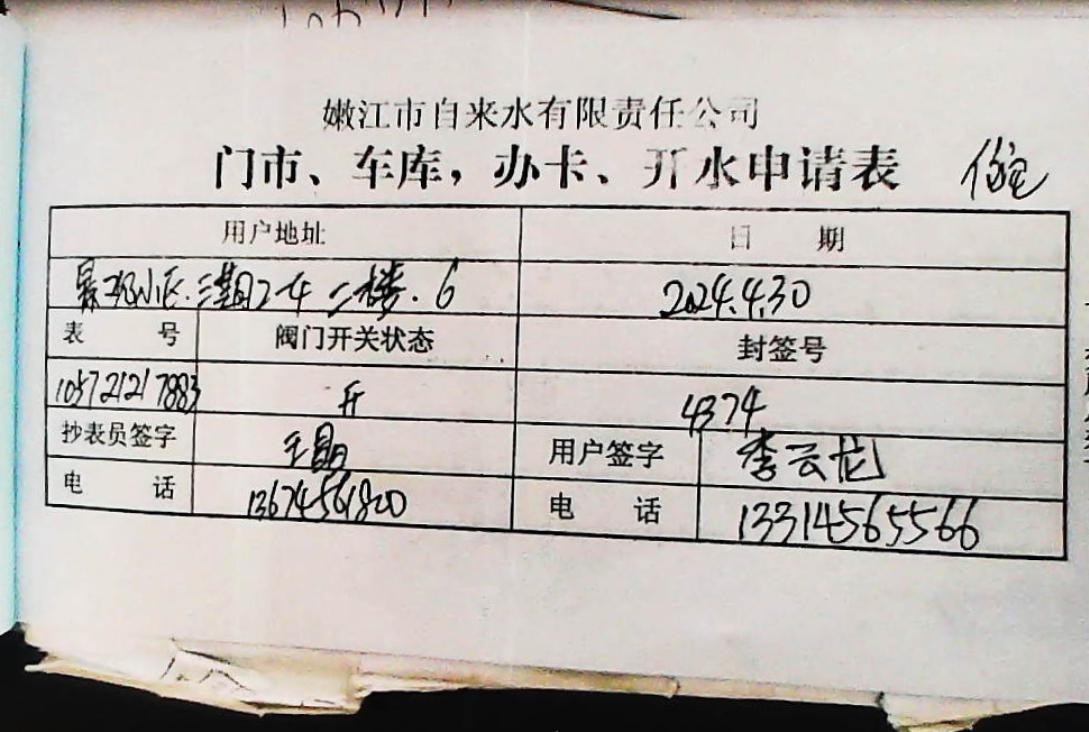 嫩江市自来水有限责任公司
门市、车库，办卡、开水申请表 住宅
用户地址 日 期
小区.三期2-4 二楼.6 2024.4.30
表 号 阀门开关状态 封签号
105721217883 开 4374
抄表员签字 王晶 用户签字 李云龙
电 话 13674561820 电 话 13314565566